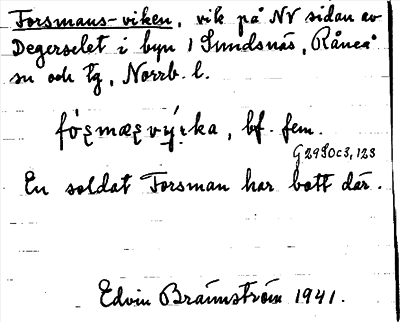 Forsmans-viken, vik på NV sidan av
Degerselet i byn 1 Sundsnäs, Råneå
sn och tg, Norrb. l.
bf. fem.
G 29
En soldat Forsman har bott där.
Edvin Brännström 1941.